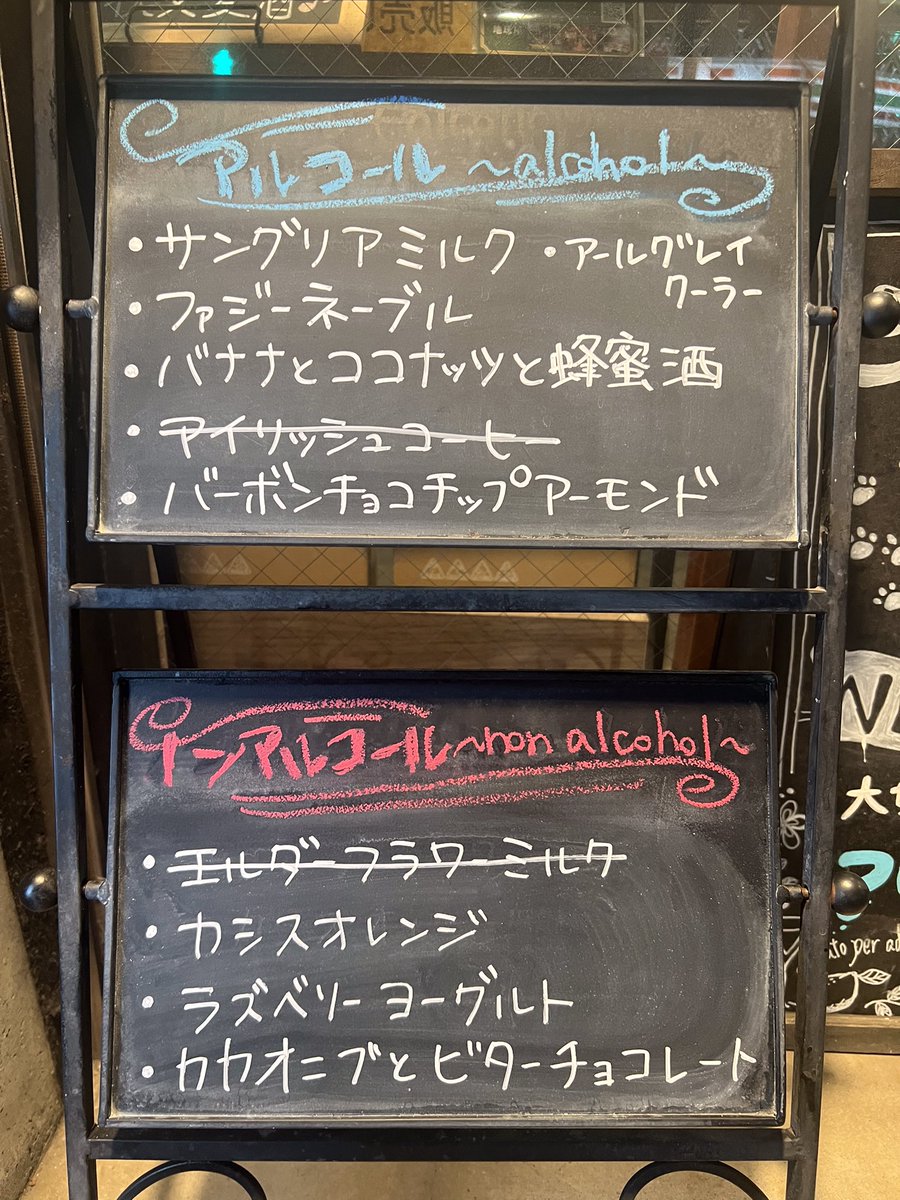 販売
アルコール ~alcohol~
・サングリアミルク
・アールグレイ
クーラー
・ファジーネーブル
・バナナとココナッツと蜂蜜酒
・アイリッシュコーヒー
・バーボンチョコチップアーモンド
ノンアルコール~non alcohol~
・エルダーフラワーミルク
・カシスオレンジ
・ラズベリーヨーグルト
・カカオニブとビターチョコレート
大
per